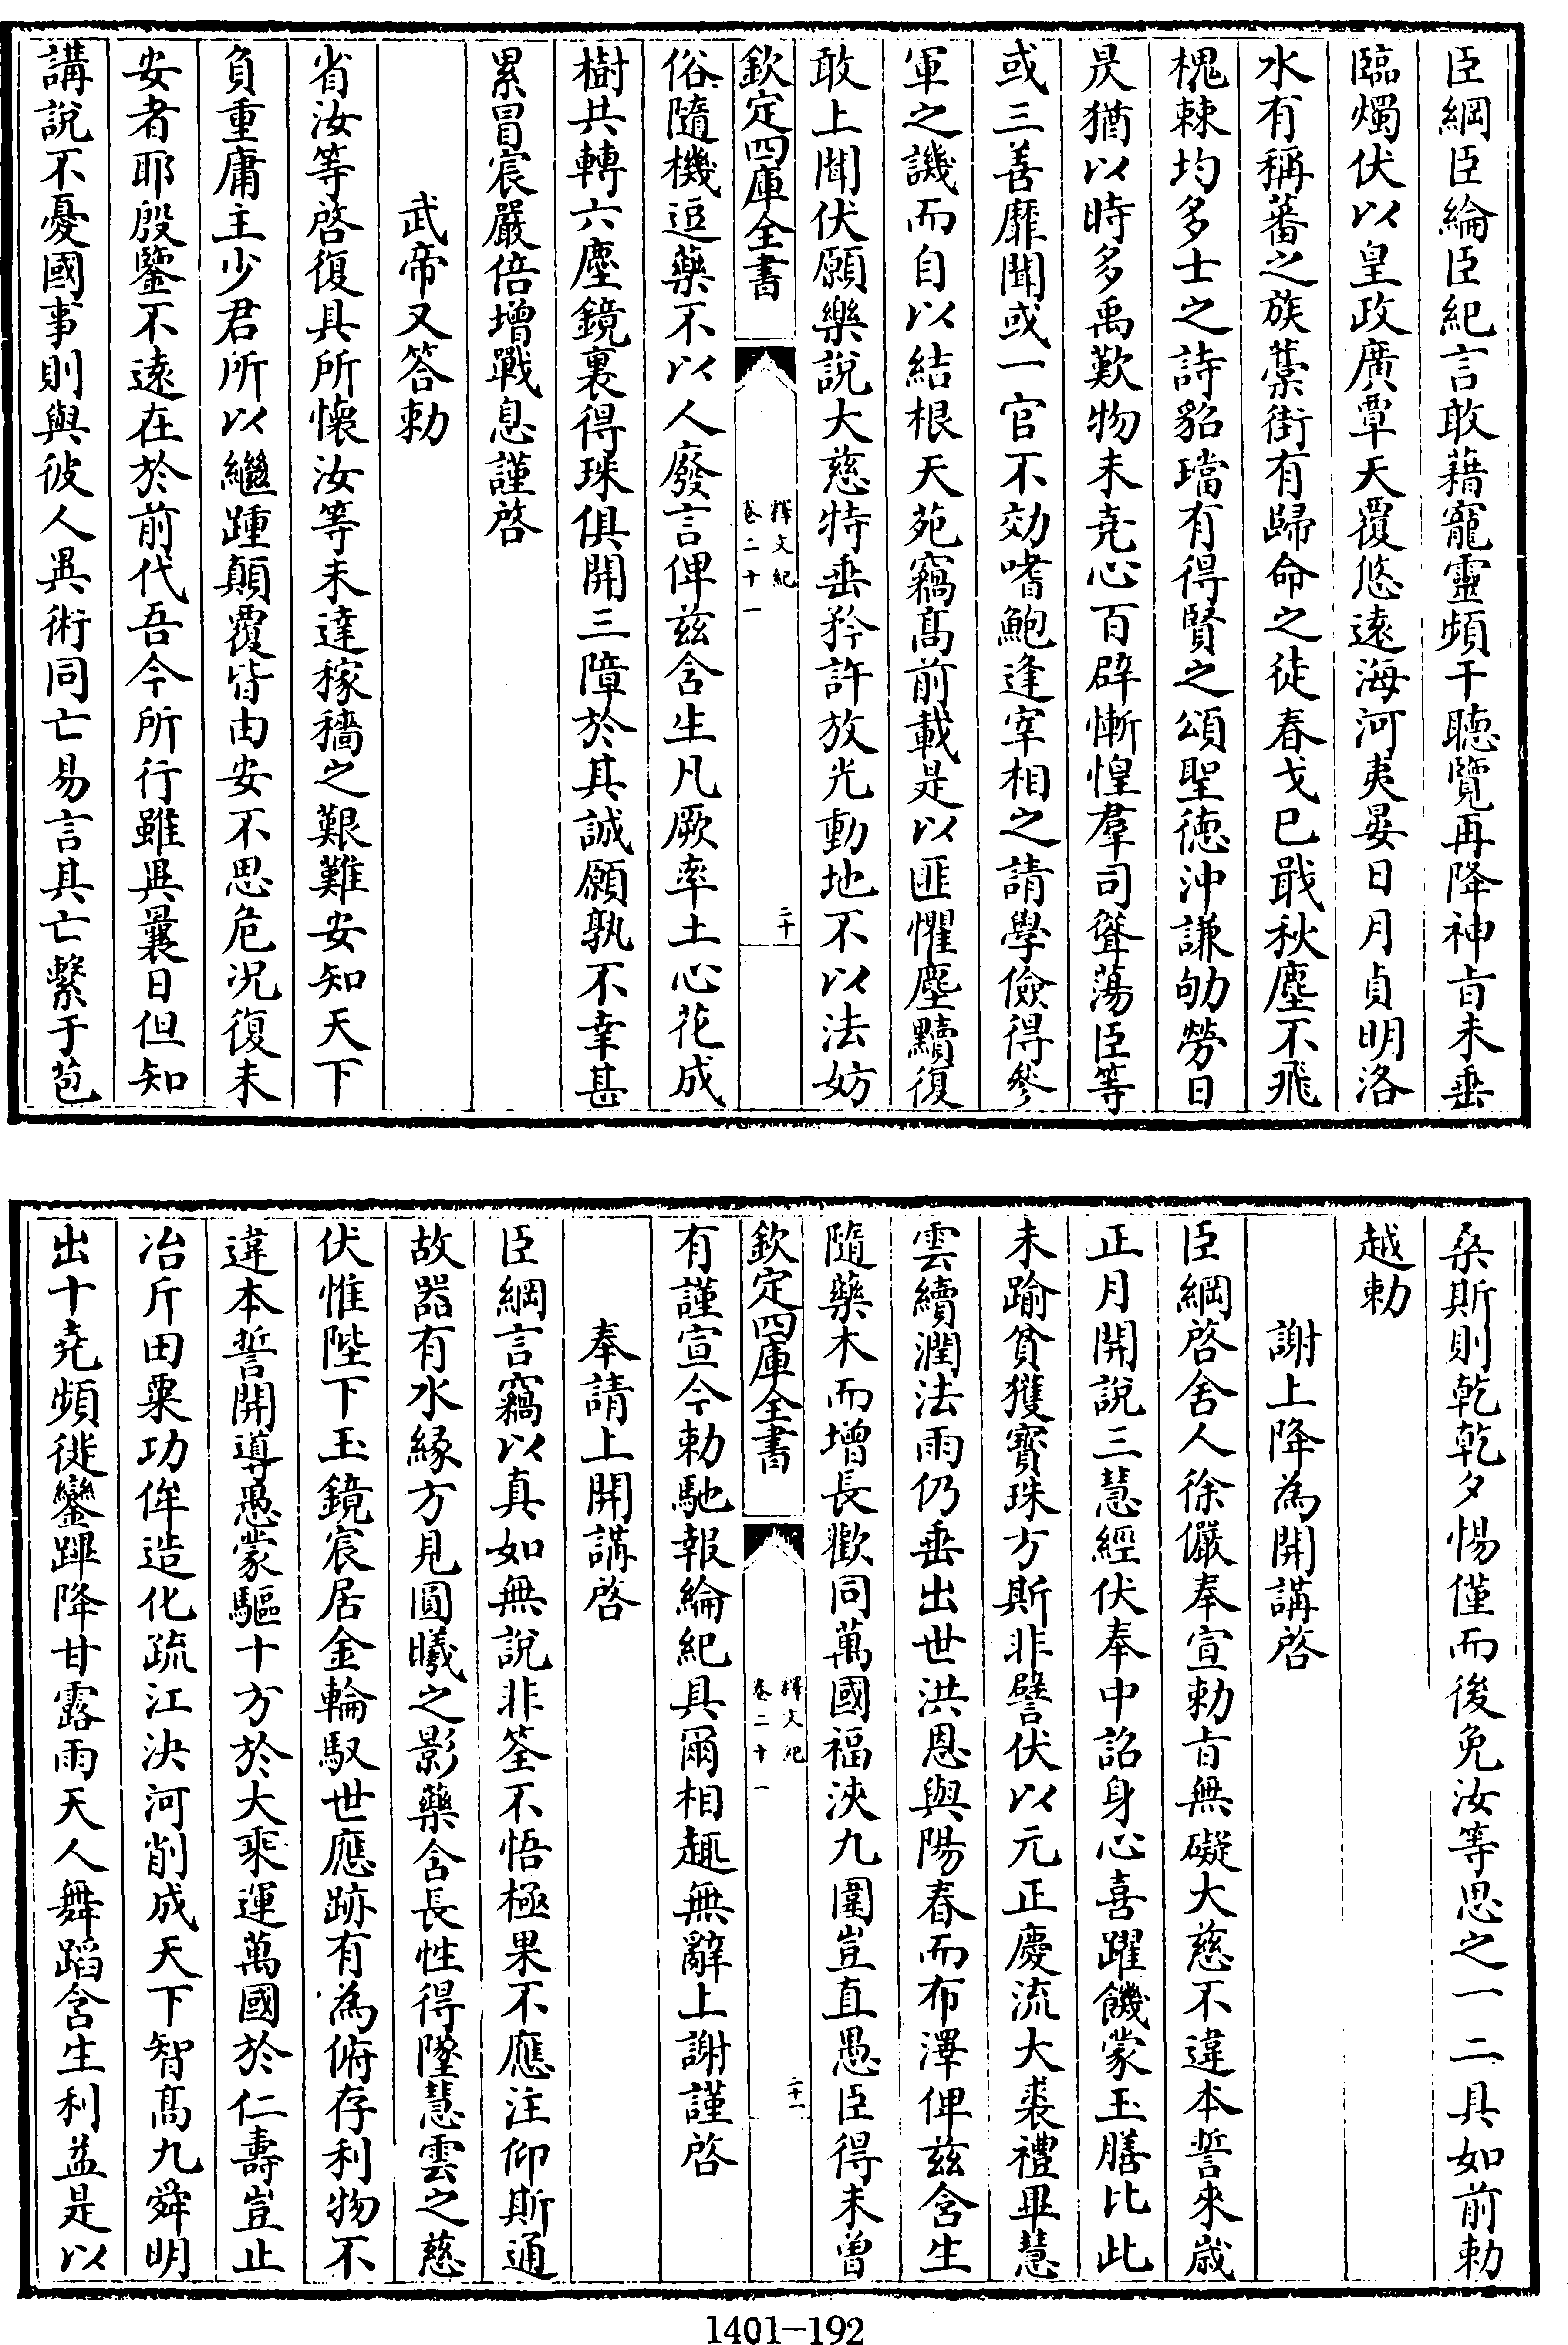 臣綱臣綸臣紀言敢藉寵靈頻干聽覽再降神㫖未垂
臨燭伏以皇政廣覃天覆悠遠海河夷晏日月貞明洛
水有稱蕃之族藁街有歸命之徒春戈已戢秋塵不飛
槐棘均多士之詩貂璫有得賢之頌聖徳沖謙劬勞日
昃猶以時多禹歎物未堯心百辟慚惶羣司聳蕩臣等
或三善靡聞或一官不効嗜鮑逢宰相之請學儉得參
軍之譏而自以結根天苑竊髙前載是以匪懼塵黷復
敢上聞伏願樂說大慈特垂矜許放光動地不以法妨
欽定四庫全書
釋文紀
卷二十一
二十
俗隨機逗藥不以人廢言俾兹含生凡厥率土心花成
樹共轉六塵鏡裏得珠俱開三障於其誠願孰不幸甚
累冒宸嚴倍增戰息謹啓
武帝又答勅
省汝等啓復具所懷汝等未達稼穡之艱難安知天下
負重庸主少君所以繼踵顛覆皆由安不思危况復未
安者耶殷鑒不遠在於前代吾今所行雖異曩日但知
講說不憂國事則與彼人異術同亡易言其亡亡繫于苞
桑斯則乾乾夕惕僅而後免汝等思之一二具如前勅
越勅
謝上降為開講啓
臣綱啓舍人徐儼奉宣勅㫖無礙大慈不違本誓來歲
正月開說三慧經伏奉中詔身心喜躍饑蒙玉膳比此
未踰貧獲寳珠方斯非譬伏以元正慶流大裘禮畢慧
雲續潤法雨仍垂出世洪恩與陽春而布澤俾兹含生
隨藥木而增長歡同萬國福浹九圍豈直愚臣得未曾
欽定四庫全書
釋文紀
卷二十一
二十一
有謹宣今勅馳報綸紀具爾相趣無辭上謝謹啓
奉請上開講啓
臣綱言竊以真如無說非筌不悟極果不應注仰斯通
故器有水縁方見圓曦之影藥含長性得墜慧雲之慈
伏惟陛下玉鏡宸居金輪馭世應跡有為俯存利物不
違本誓開導愚蒙驅十方於大乘運萬國於仁壽豈止
冶斤田粟功侔造化疏江決河削成天下智髙九舜明
出十堯頻徙鑾蹕降甘露雨天人舞蹈含生利益是以
1401-192